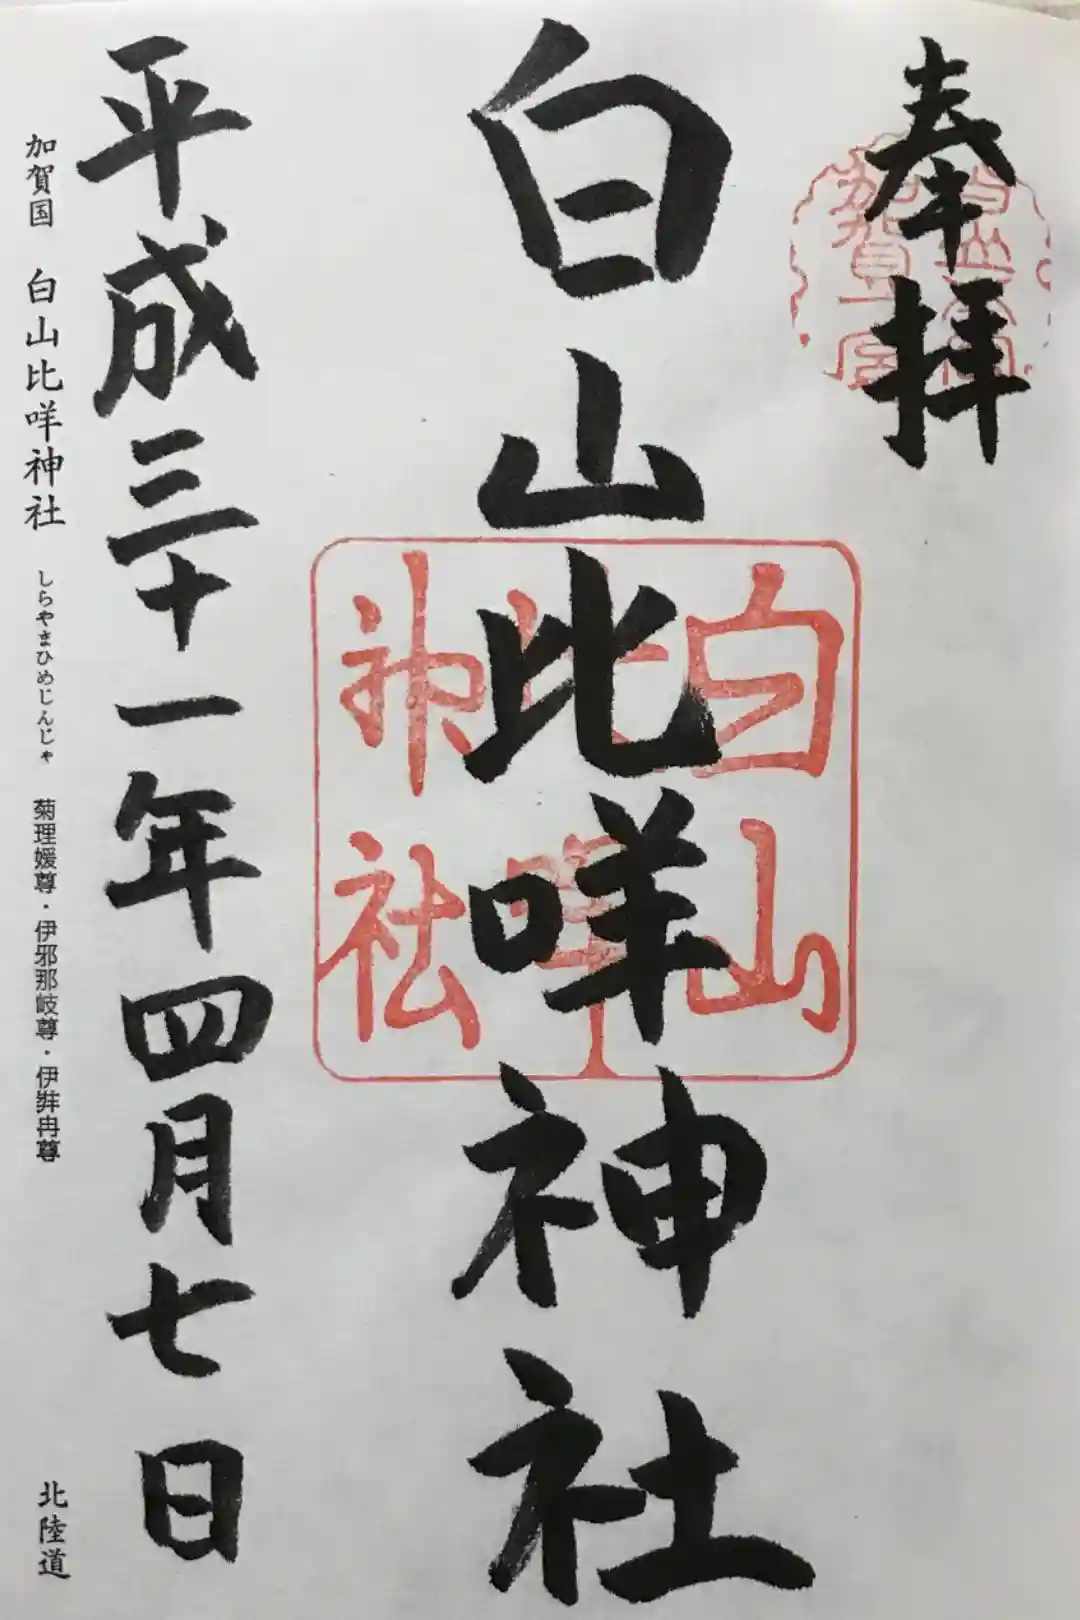 奉拝
白山総本宮
加賀一宮
白山比咩神社
白山
比咩
神社
平成三十一年四月七日
加賀国 白山比咩神社 しらやまひめじんじゃ 菊理媛尊・伊邪那岐尊・伊弉冉尊 北陸道